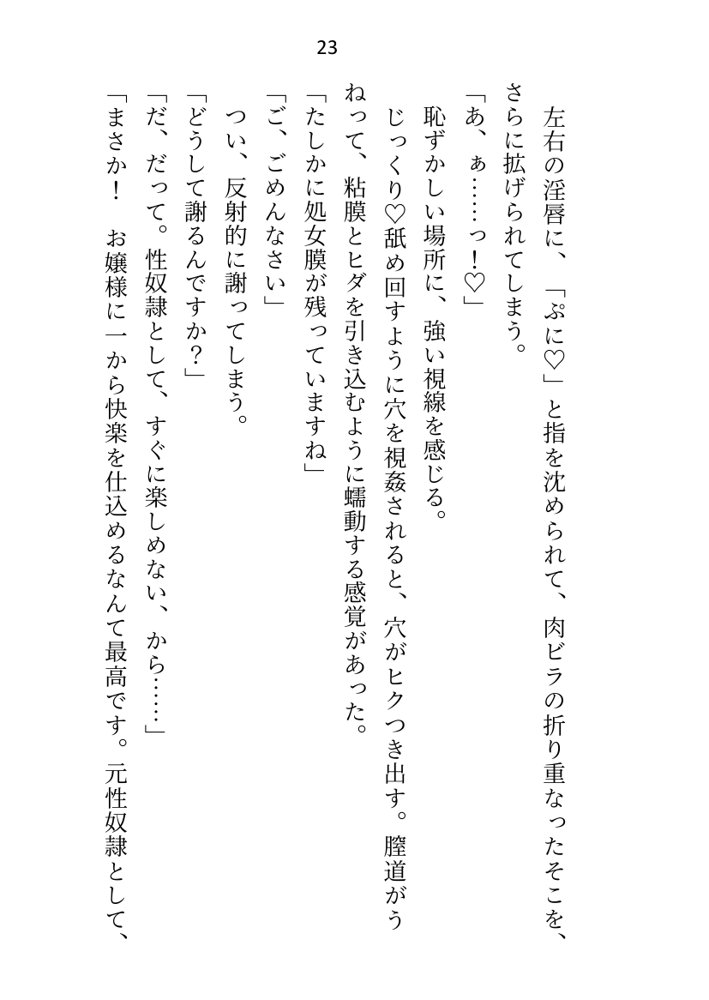 23
左右の淫唇に、「ぷに♡」と指を沈められて、肉ビラの折り重なったそこを、
さらに拡げられてしまう。
「あ、ぁ……っ！♡」
恥ずかしい場所に、強い視線を感じる。
じっくり♡舐め回すように穴を視姦されると、穴がヒクつき出す。膣道がう
ねって、粘膜とヒダを引き込むように蠕動する感覚があった。
「たしかに処女膜が残っていますね」
「ご、ごめんなさい」
つい、反射的に謝ってしまう。
「どうして謝るんですか？」
「だ、だって。性奴隷として、すぐに楽しめない、から……」
「まさか！　お嬢様に一から快楽を仕込めるなんて最高です。元性奴隷として、